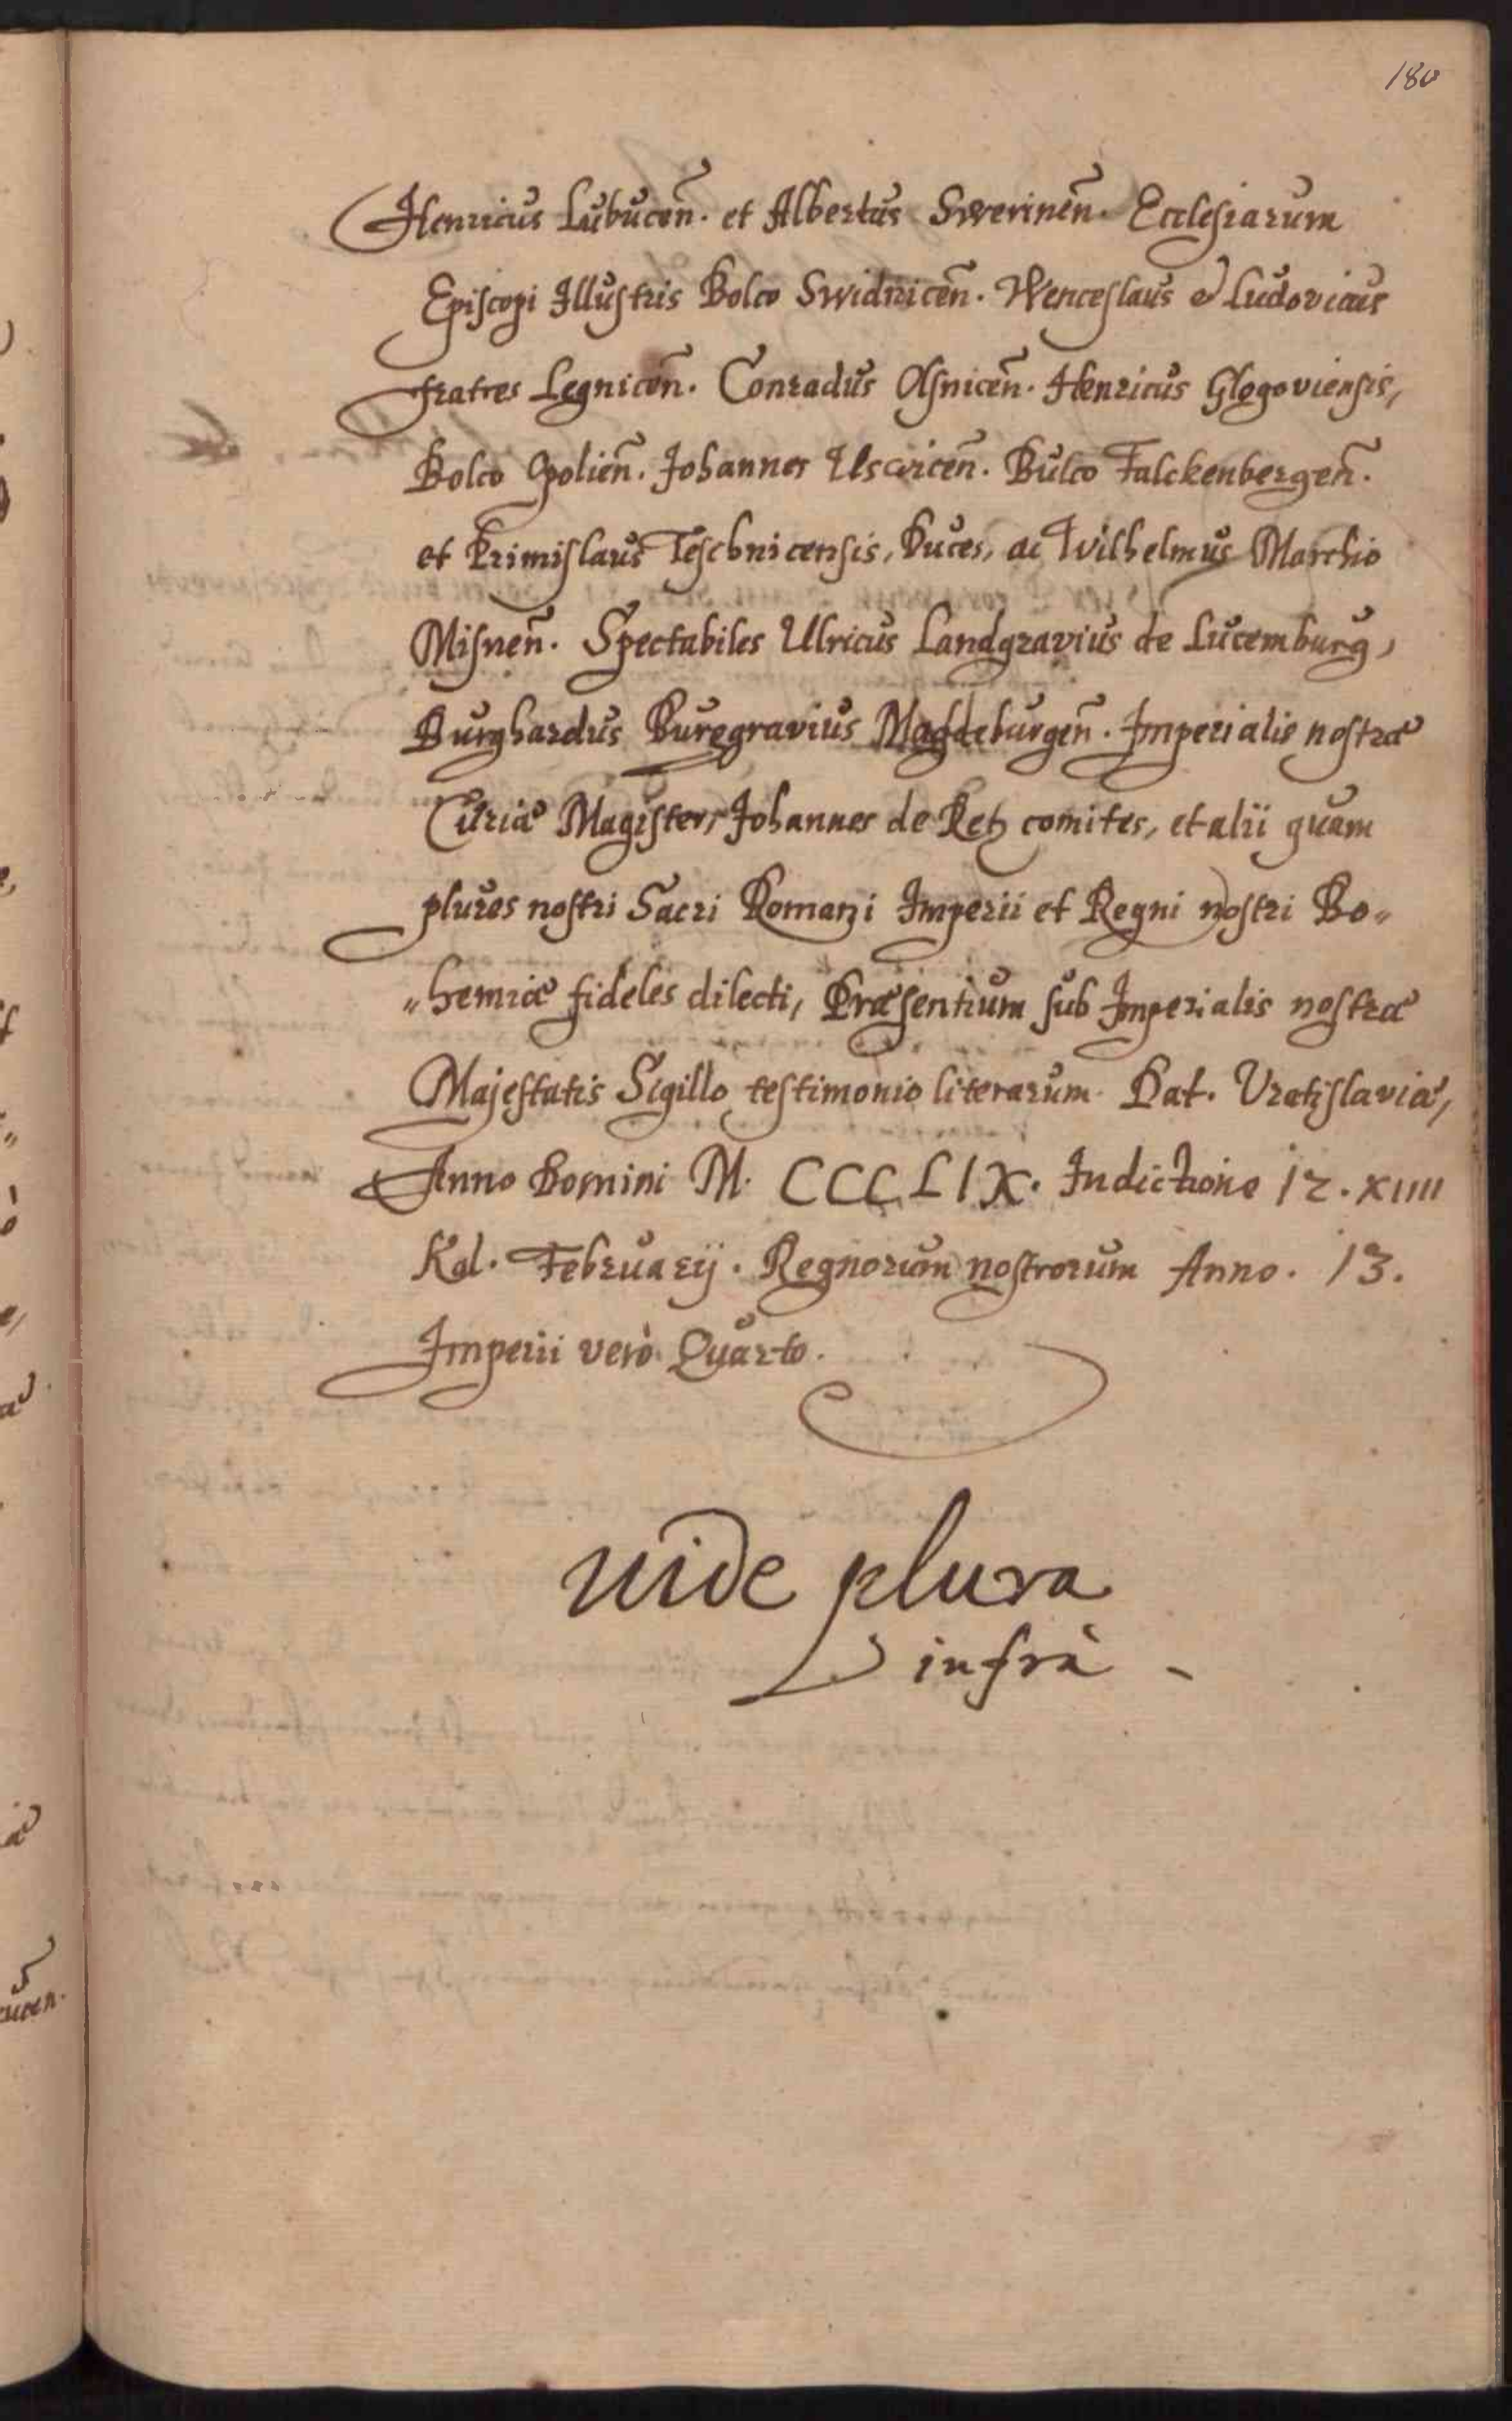 180
Henricus Lubucen̄. et Albertus Swerinen̄. Ecclesiarum
Episcopi Illustris Bolco Swidnicen̄. Wenceslaus et Ludovicus
fratres Legnicen̄. Conradus Olsnicen̄. Henricus Glogoviensis,
Bolco Opolien̄. Johannes Uswicen̄. Bulco Falckenbergen̄.
et Primislaus Teschnicensis, Duces, ac Wilhelmus Marchio
Misnen̄. Spectabiles Ulricus Landgravius de Lucemburg,
Burghardus Burggravius Magdeburgen̄. Imperialis nostræ
Curiæ Magister, Johannes de Retz comites, et alii quam
plures nostri Sacri Romani Imperii et Regni nostri Bo„
„hemiæ fideles dilecti, Præsentium sub Imperialis nostræ
Majestatis Sigillo testimonio literarum. Dat. Vratislaviæ,
Anno Domini M. CCCLIX. Indictione 12. XIIII
Kal. Februarij. Regnorum nostrorum Anno. 13.
Imperii verò Quarto.
uide plura
infrà